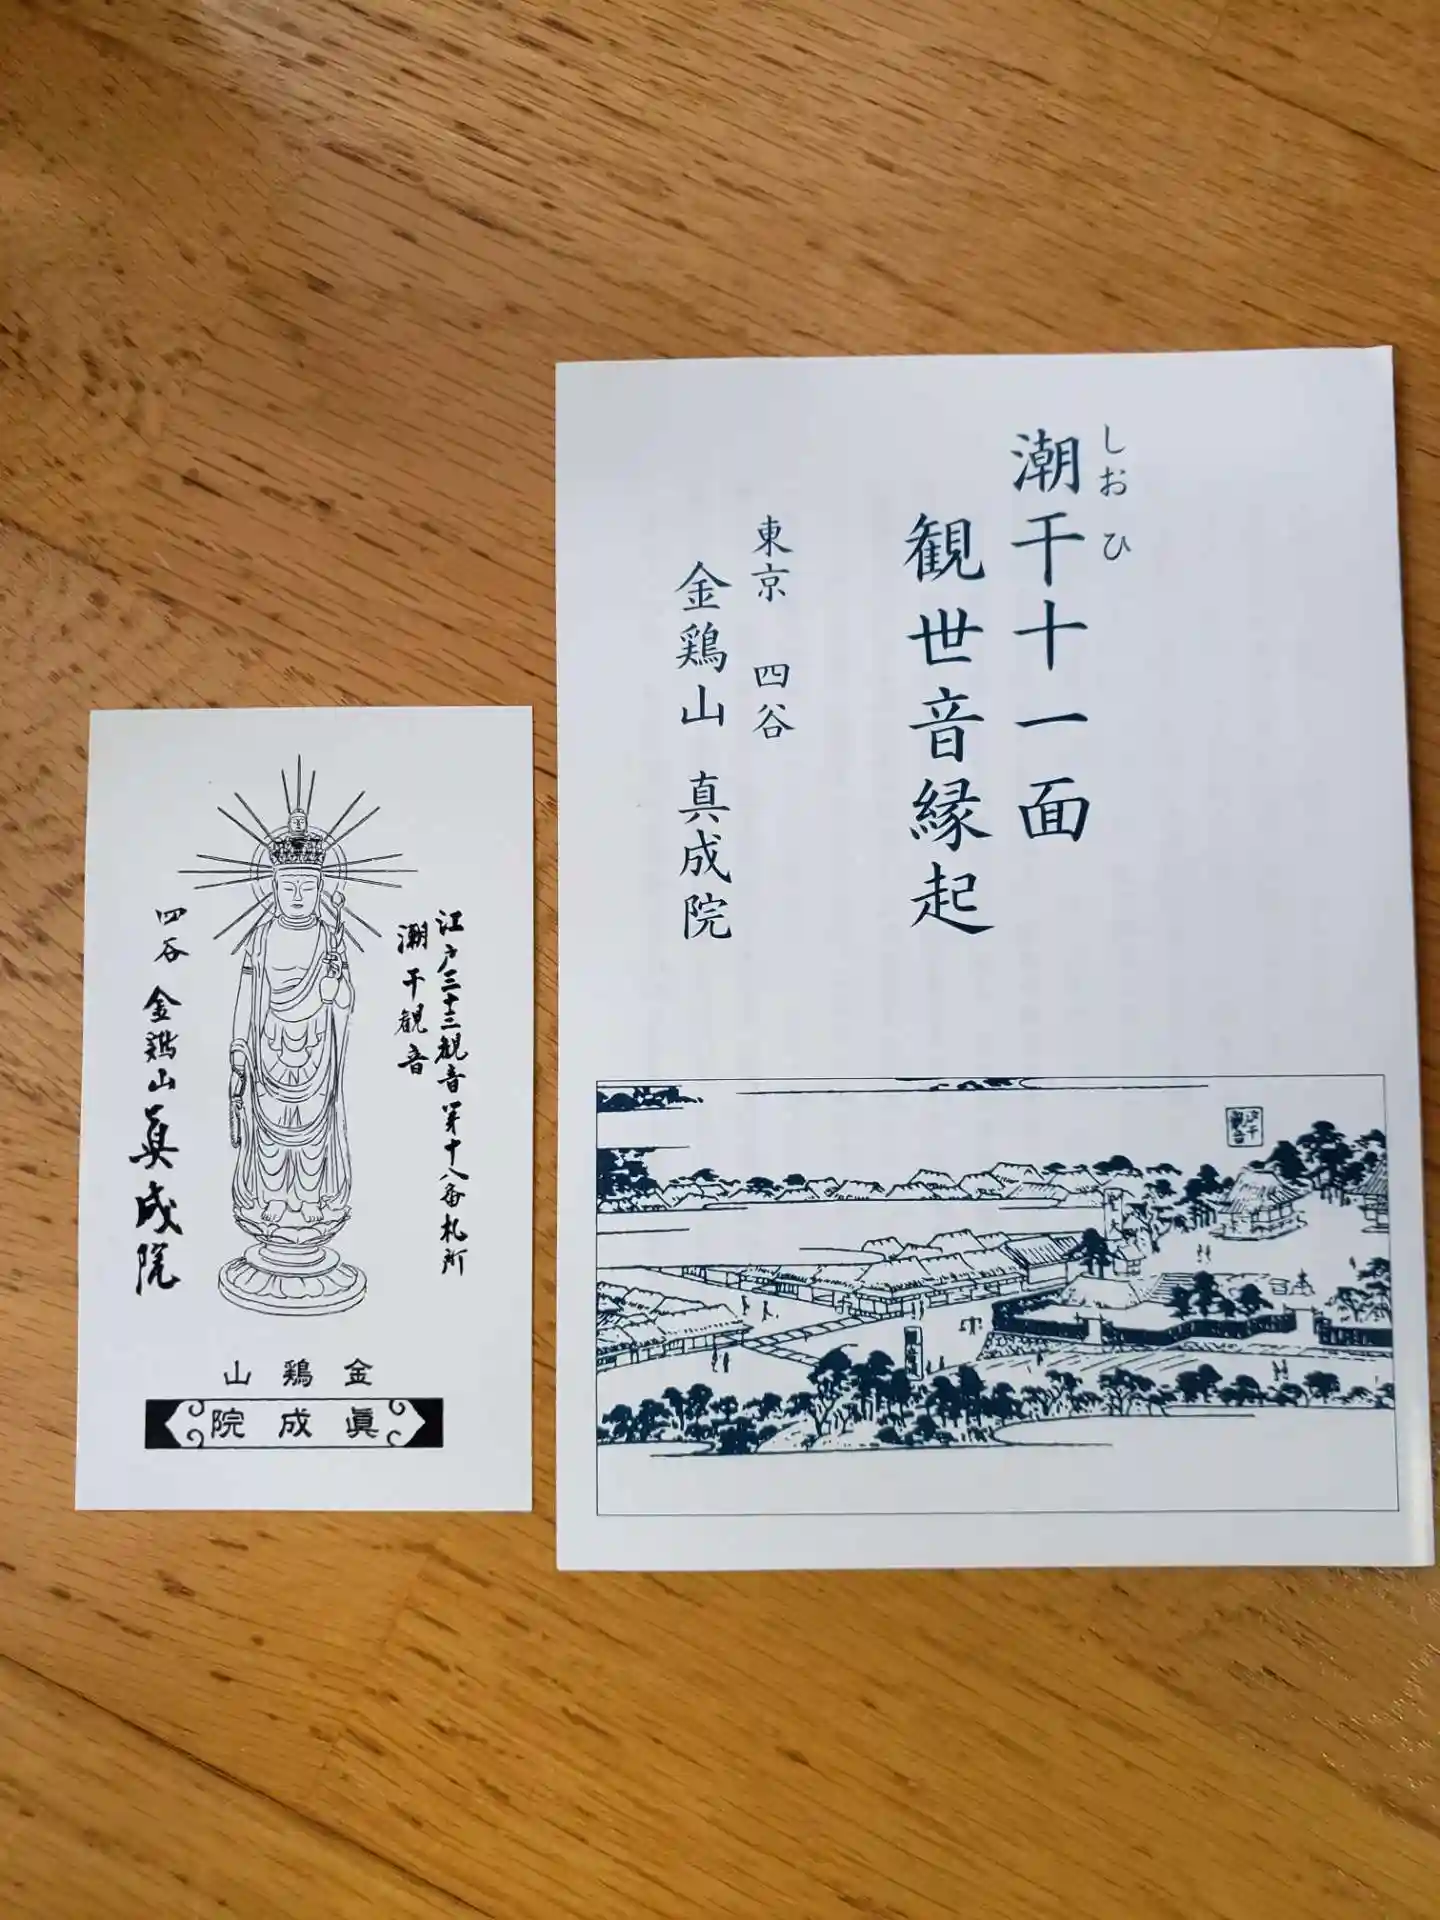 江戸三十三観音第十八番札所
潮干観音
四谷 金鶏山 眞成院
金鶏山
眞成院
しおひ
潮干十一面
観世音縁起
東京 四谷
金鶏山 真成院